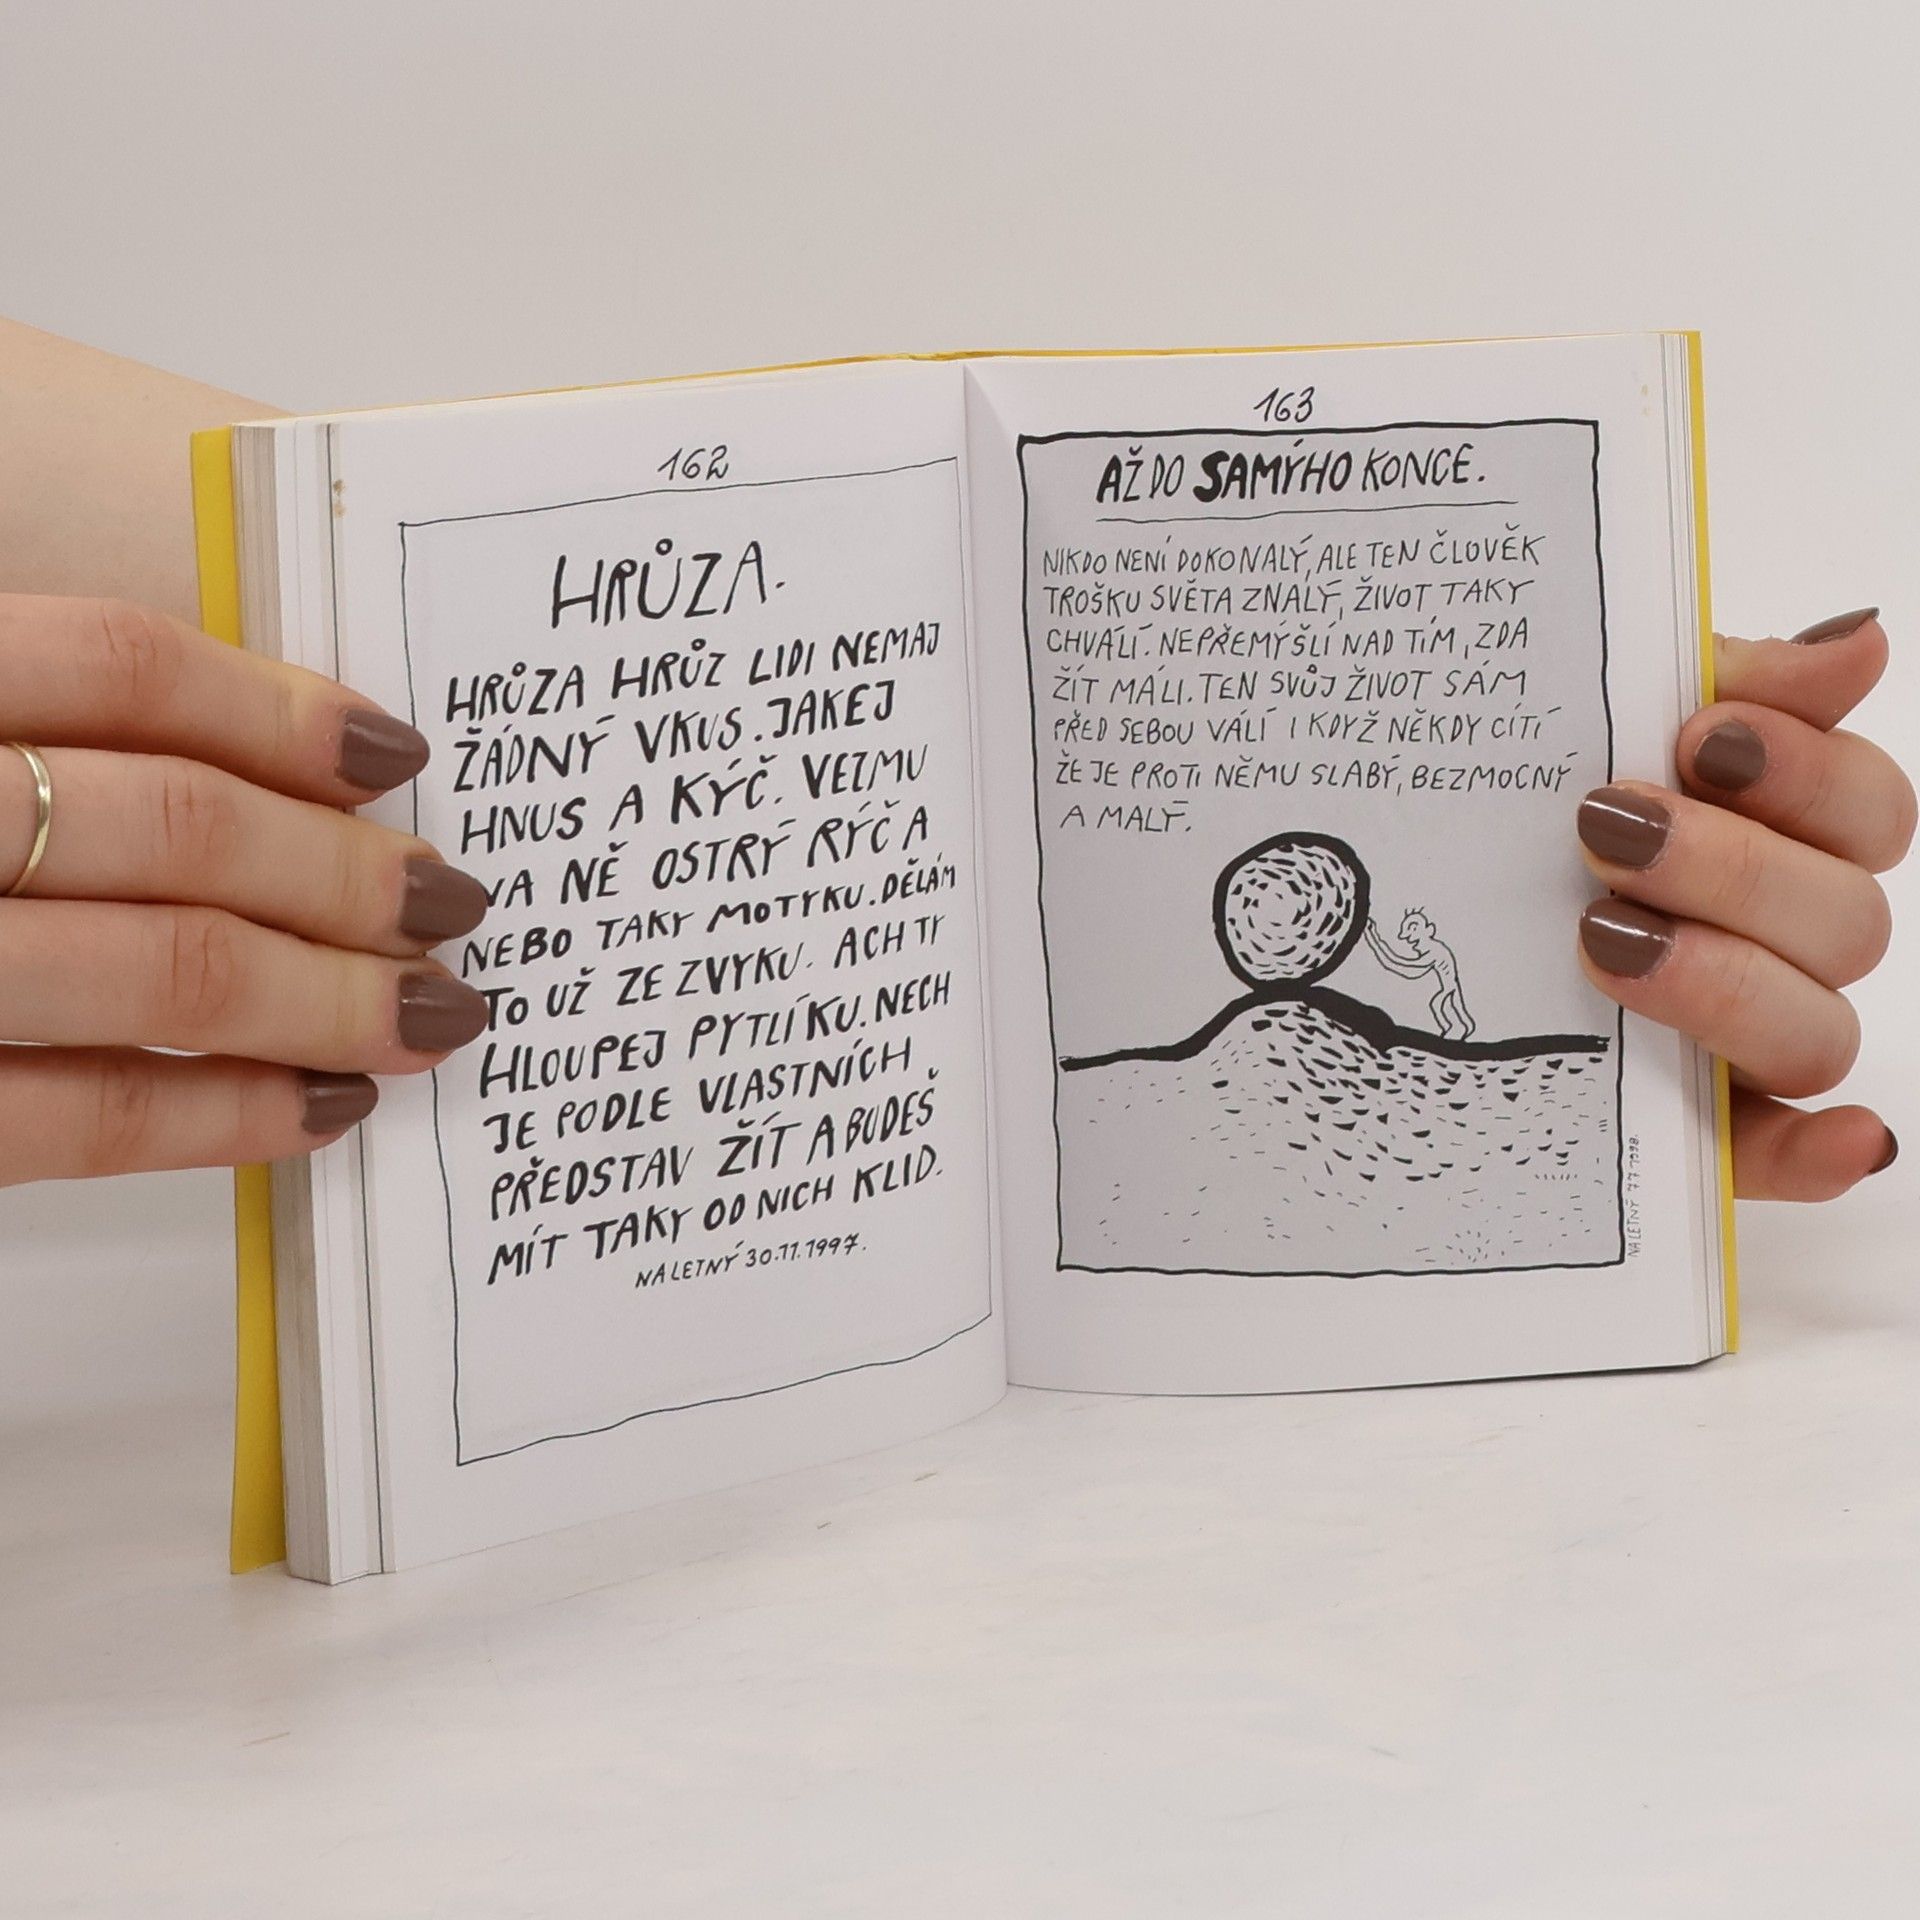 162
HRŮZA.
HRŮZA HRŮZ LIDI NEMAJ
ŽÁDNÝ VKUS. JAKEJ
HNUS A KÝČ. VEZMU
NA NĚ OSTRÝ RÝČ A
NEBO TAKY MOTYKU. DĚLÁM
TO UŽ ZE ZVYKU. ACH TY
HLOUPEJ PYTLÍKU. NECH
JE PODLE VLASTNÍCH
PŘEDSTAV ŽÍT A BUDEŠ
MÍT TAKY OD NICH KLID.
NA LETNÝ 30.11.1997.
163
AŽ DO SAMÝHO KONCE.
NIKDO NENÍ DOKONALÝ, ALE TEN ČLOVĚK
TROŠKU SVĚTA ZNALÝ, ŽIVOT TAKY
CHVÁLÍ. NEPŘEMÝŠLÍ NAD TÍM, ZDA
ŽÍT MÁ LI. TEN SVŮJ ŽIVOT SÁM
PŘED SEBOU VÁLÍ I KDYŽ NĚKDY CÍTÍ
ŽE JE PROTI NĚMU SLABÝ, BEZMOCNÝ
A MALÝ.
NA LETNÝ 7.7.1998.